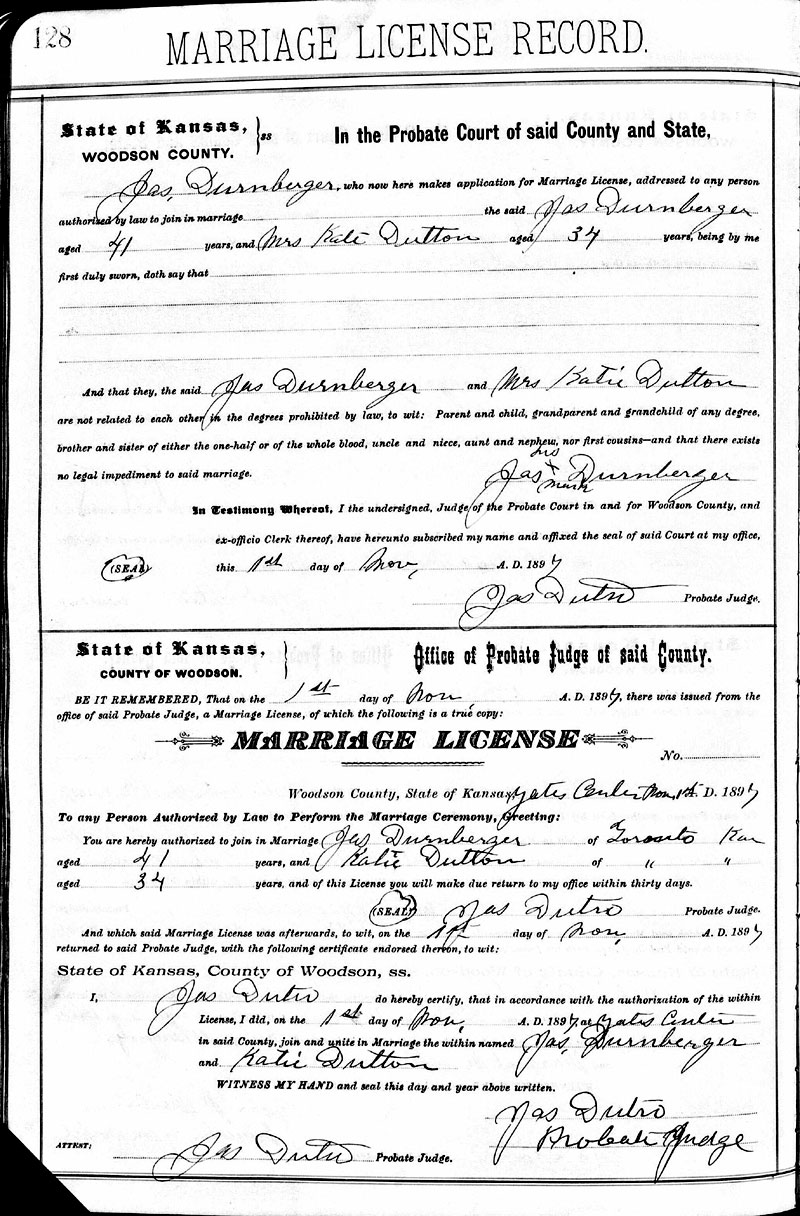 128
MARRIAGE LICENSE RECORD.
State of Kansas, } ss In the Probate Court of said County and State,
WOODSON COUNTY.
Jas. Durnberger, who now here makes application for Marriage License, addressed to any person
authorized by law to join in marriage the said Jas Durnberger
aged 41 years, and Mrs Kate Dutton aged 34 years, being by me
first duly sworn, doth say that
And that they, the said Jas Durnberger and Mrs Katie Dutton
are not related to each other in the degrees prohibited by law, to wit: Parent and child, grandparent and grandchild of any degree,
brother and sister of either the one-half or of the whole blood, uncle and niece, aunt and nephew, nor first cousins—and that there exists
no legal impediment to said marriage.
his
Jas x Durnberger
mark
In Testimony Whereof, I the undersigned, Judge of the Probate Court in and for Woodson County, and
ex-officio Clerk thereof, have hereunto subscribed my name and affixed the seal of said Court at my office,
(SEAL) this 1st day of Nov, A. D. 1897
Jas Dutro Probate Judge.
State of Kansas, } Office of Probate Judge of said County.
COUNTY OF WOODSON.
BE IT REMEMBERED, That on the 1st day of Nov A. D. 1897, there was issued from the
office of said Probate Judge, a Marriage License, of which the following is a true copy:
MARRIAGE LICENSE
No.
Woodson County, State of Kansas, Yates Center Nov 1st A. D. 1897
To any Person Authorized by Law to Perform the Marriage Ceremony, Greeting:
You are hereby authorized to join in Marriage Jas Durnberger of Toronto Kan
aged 41 years, and Katie Dutton of " "
aged 34 years, and of this License you will make due return to my office within thirty days.
(SEAL) Jas Dutro Probate Judge.
And which said Marriage License was afterwards, to wit, on the 1st day of Nov, A. D. 1897
returned to said Probate Judge, with the following certificate endorsed thereon, to wit:
State of Kansas, County of Woodson, ss.
I, Jas Dutro do hereby certify, that in accordance with the authorization of the within
License, I did, on the 1st day of Nov, A. D. 1897, at Yates Center
in said County, join and unite in Marriage the within named Jas, Durnberger
and Katie Dutton
WITNESS MY HAND and seal this day and year above written.
Jas Dutro
Probate Judge
ATTEST: Jas Dutro Probate Judge.